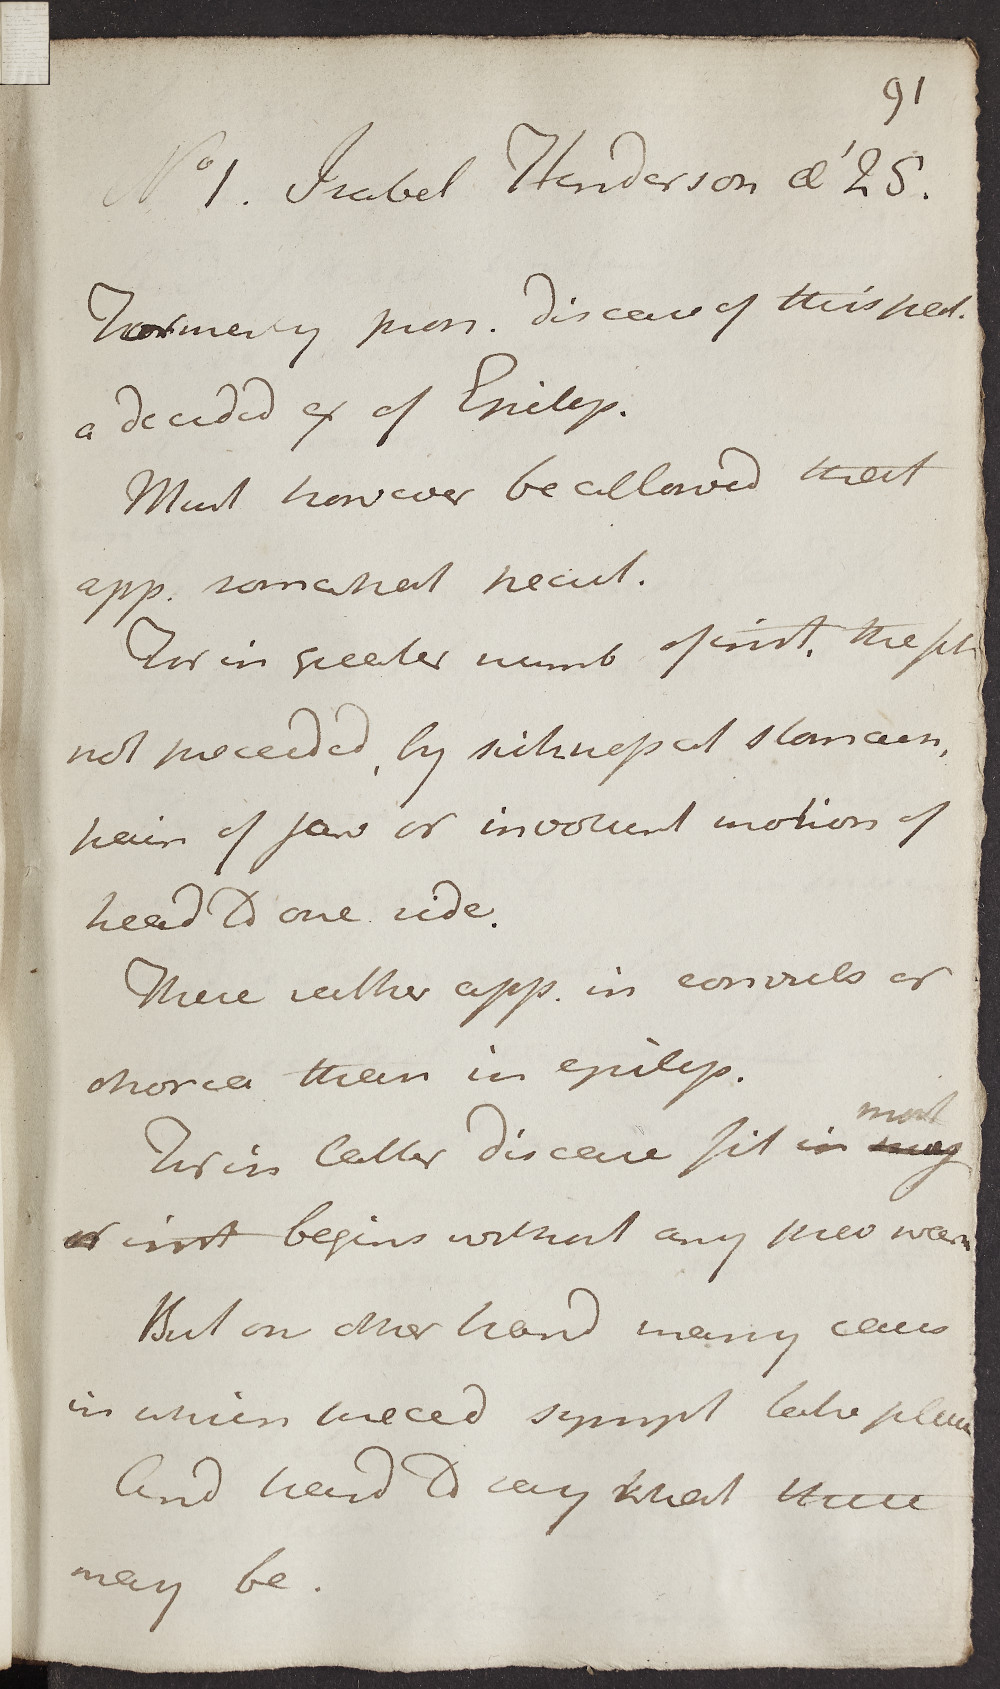 91
No 1. Isabel Henderson æ' 25.
Formerly pron. disease of this pat.
a decided ex of Epilep.
Must however be allowed that
app. somewhat pecul.
For in greater numb of inst. the fit
not preceeded, by sickness at stomach,
pain of jaw or involunt motion of
head to one side.
These rather app. in convuls or
chorea than in epilep.
For in latter disease fit in most
inst begins without any prev warn
But on other hand many cases
in which preced sympt take place
And hard to say what these
may be.